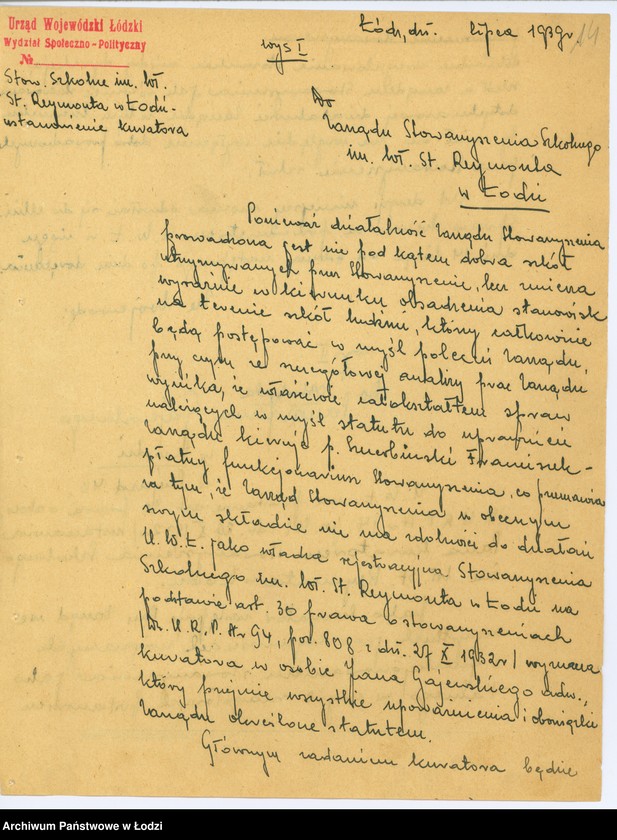 Urząd Wojewódzki Łódzki
Wydział Społeczno-Polityczny
№
Łódź, dn. lipca 1939 r.
14
wys I
Stow. Szkolne im. Wł.
St. Reymonta w Łodzi -
ustanowienie kuratora
Do
Zarządu Stowarzyszenia Szkolnego
im. Wł. St. Reymonta
w Łodzi
Ponieważ działalność Zarządu Stowarzyszenia
prowadzona jest nie pod kątem dobra szkół
utrzymywanych przez Stowarzyszenie, lecz zmierza
wyraźnie w kierunku obsadzenia stanowisk
na terenie szkół ludźmi, który całkowicie
będą postępować w myśl poleceń Zarządu,
przy czym ze szczegółowej analizy prac Zarządu
wynika, że właściwie całokształtem spraw
należących w myśl statutu do uprawnień
Zarządu kieruje p. Franciszek -
płatny funkcjonariusz Stowarzyszenia, co przemawia
za tym, że Zarząd Stowarzyszenia w obecnym
swym składzie nie ma zdolności do działań
U. W. Ł. jako władza rejestracyjna Stowarzyszenia
Szkolnego im. Wł. St. Reymonta w Łodzi na
podstawie art. 30 prawa o stowarzyszeniach
/Dz. U. R. P. Nr 94, poz. 808 z dn. 27 X 1932 r/ wyznacza
kuratora w osobie Jana Gajewskiego adw.,
który przejmie wszystkie upoważnienia i obowiązki
Zarządu określone statutem.
Głównym zadaniem kuratora będzie
Archiwum Państwowe w Łodzi